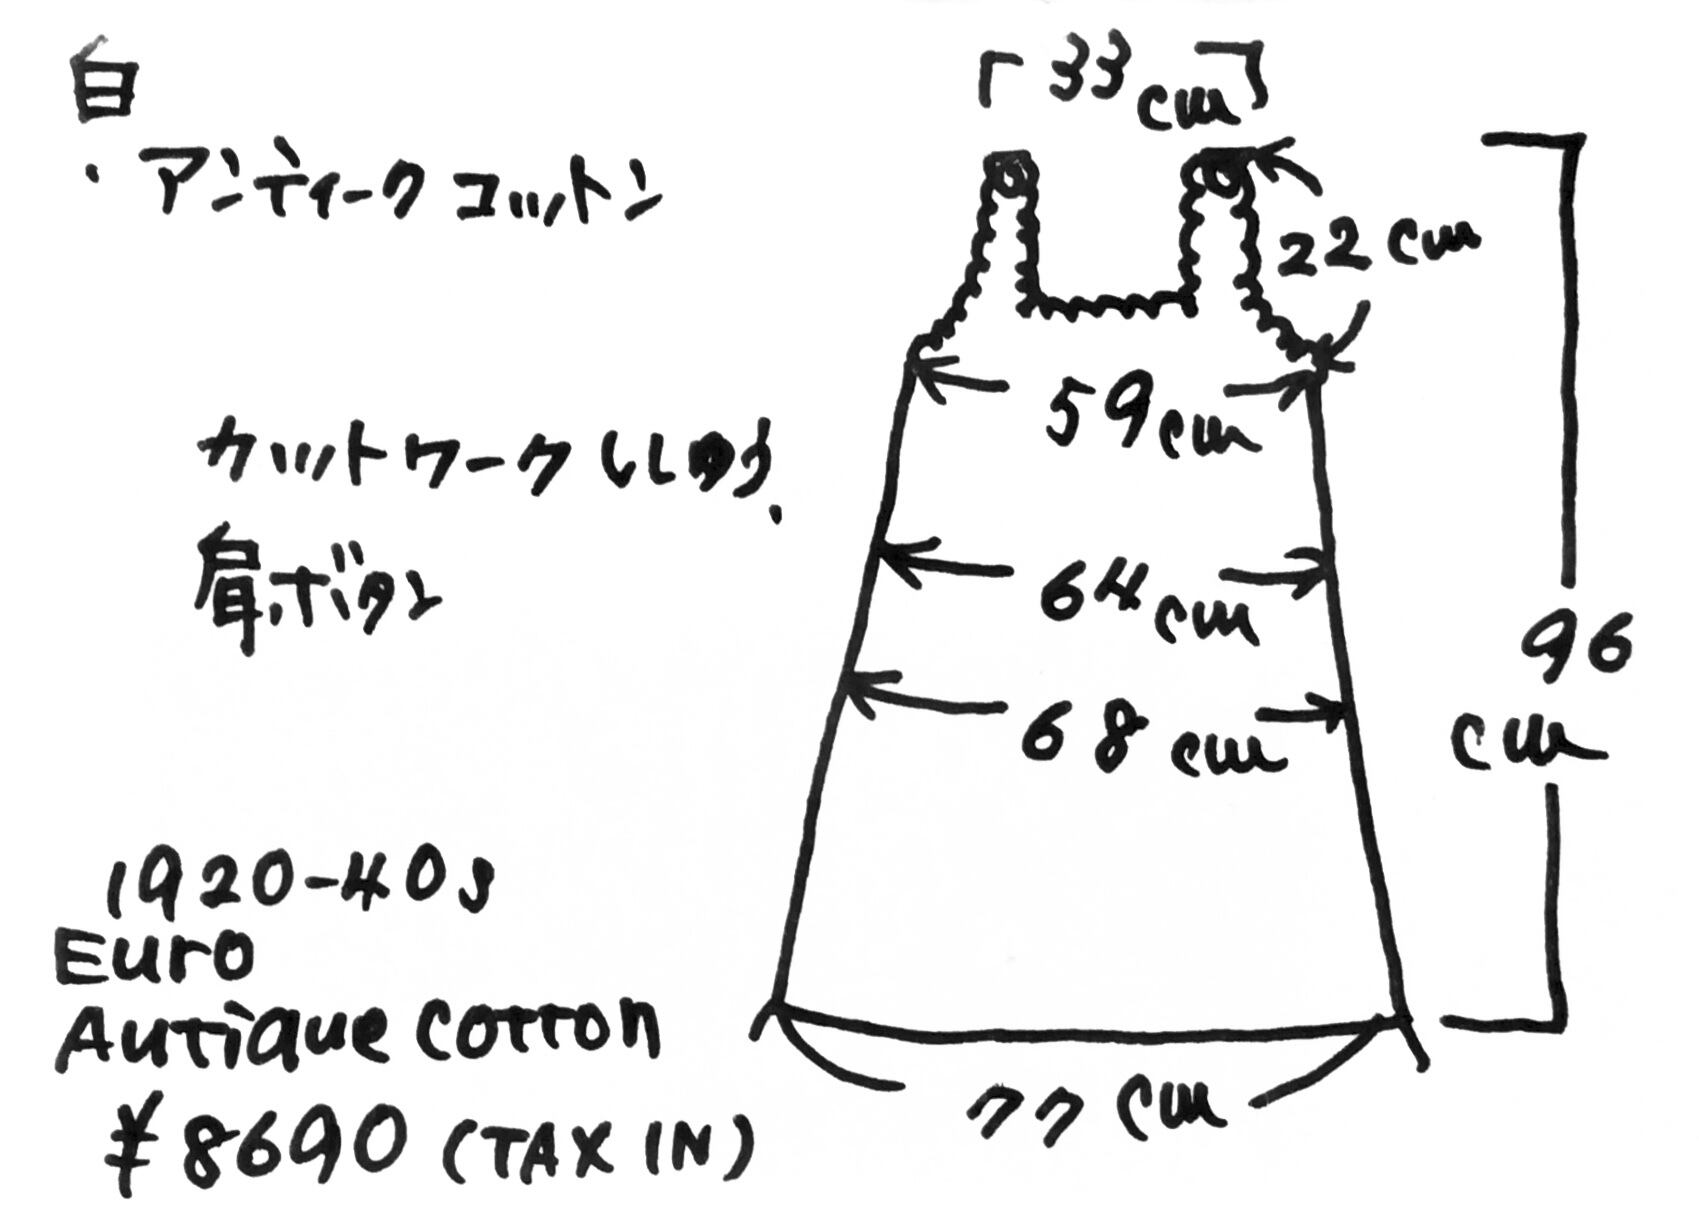 白
・アンティークコットン
カットワークししゅう.
肩ボタン
1920-40s
Euro
Antique cotton
¥8690 (TAX IN)
33cm
22cm
59cm
64cm
68cm
96
cm
77cm